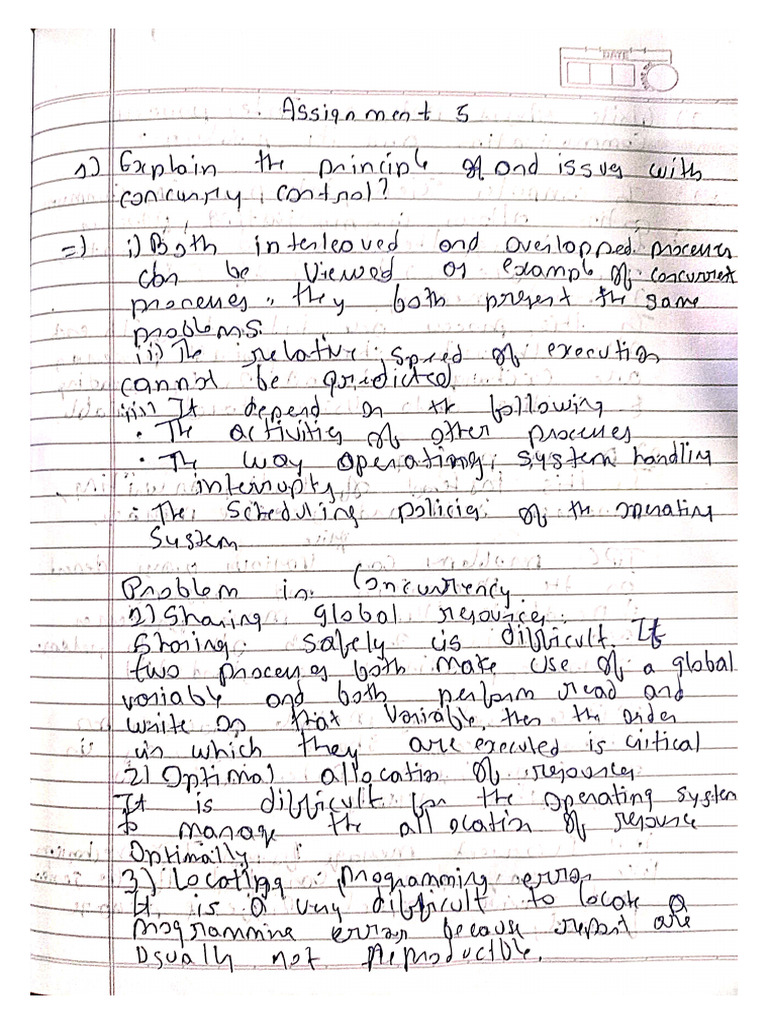 DATE
Assignment 5
1) Explain the principle of and issues with
concurrency control?
=) i) Both interleaved and overlapped processes
can be viewed as example of concurrent
processes, they both present the same
problems.
ii) The relative speed of execution
cannot be predicted.
iii) It depend on the following
• The activities of other processes
• The way operating system handling
interrupts
• The scheduling policies of the operating
system
Problem in Concurrency.
1) Sharing global resources:
Sharing safely is difficult. If
two processes both make use of a global
variable and both perform read and
write on that variable, then the order
in which they are executed is critical
2) Optimal allocation of resources
It is difficult for the operating system
to manage the allocation of resource
Optimally.
3) Locating programming error
It is a very difficult to locate a
programming error because report are
usually not Reproducible.